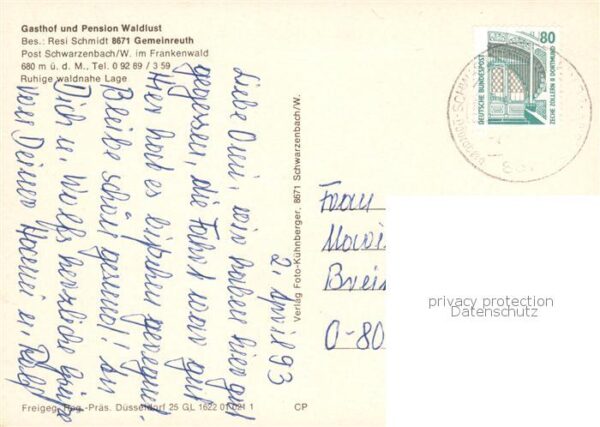 Gasthof und Pension Waldlust
Bes.: Resi Schmidt 8671 Gemeinreuth
Post Schwarzenbach/W. im Frankenwald
680 m ü. d. M., Tel. 0 92 89 / 3 59
Ruhige waldnahe Lage
2. April 93
Liebe Omi, wir haben hier gut
gegessen, die Fahrt war gut
Hier hat es bißchen geregnet
Bleibe schön gesund! An
Dich u. Wolfs herzliche Grüße
von Deiner Hanni u. Rolf
Verlag Foto-Kühnberger, 8671 Schwarzenbach/W.
80
DEUTSCHE BUNDESPOST
ZECHE ZOLLERN II DORTMUND
Frau
O-80
privacy protection
Datenschutz
Freigeg. Reg.-Präs. Düsseldorf 25 GL 1622 01 021 1
CP